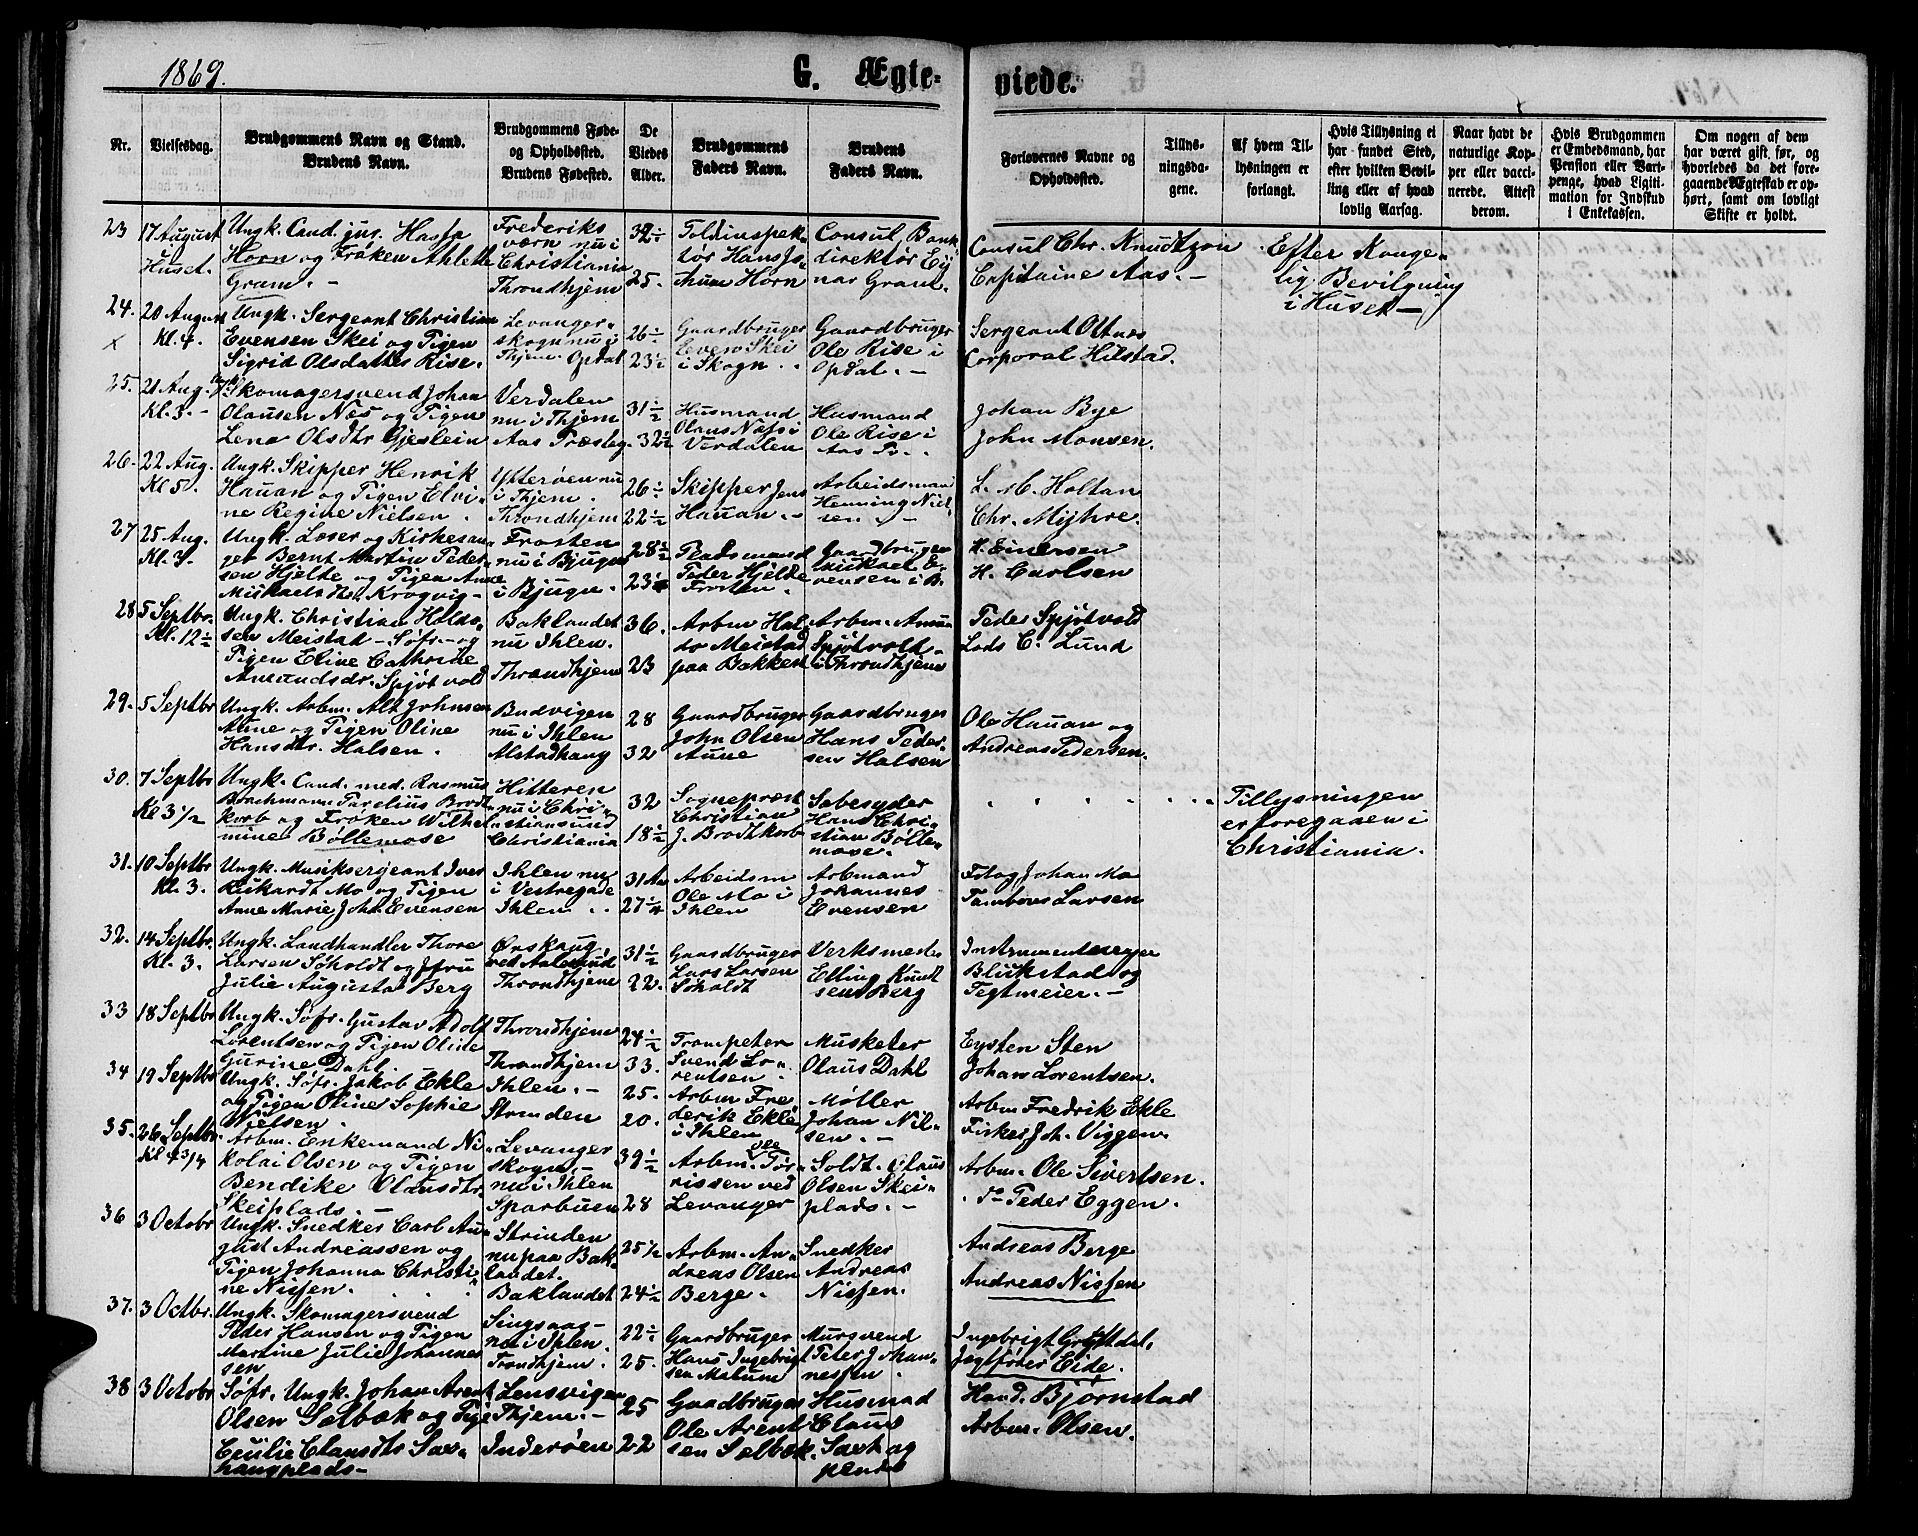 1869.
G. Ægte-
viede.
Nr.
Vielsesdag.
Brudgommens Navn og Stand.
Brudens Navn.
Brudgommens Føde-
og Opholdssted.
Brudens Fødested.
De
Viedes
Alder.
Brudgommens
Faders Navn.
Brudens
Faders Navn.
Forlovernes Navne og
Opholdssted.
Tillys-
ningsda-
gene.
Af hvem Til-
lysningen er
forlangt.
Hvis Tillysning ei
har fundet Sted,
efter hvilken Bevil-
ling eller af hvad
lovlig Aarsag.
Naar havt de
naturlige Kop-
per eller vacci-
nerede. Attest
derom.
Hvis Brudgommen
er Embedsmand, har
Pension eller Vart-
penge, hvad Ligiti-
mation for Indskud
i Enkekassen.
Om nogen af dem
har været gift før, og
hvorledes da det fore-
gaaende Ægteskab er op-
hørt, samt om lovligt
Skifte er holdt.
23
17 August
Huset.
Ungk. Cand. jur.
Horn og Frøken Athlette
Gram. -
Frederiks
værn nu i
Christiania
Throndhjem
32½
25.
Toldinspek-
tør Hans Jo-
Horn
Consul Bank
direktør Ej-
nar Gram.
Consul Chr. Knudtzon
Capitaine Aas. -
Efter Konge-
lig Bevilgning
i Huset -
24.
x
20 August
Kl. 4.
Ungk. Sergeant Christian
Evensen Skei og Pigen
Sigrid Olsdatter Rise.
Levanger-
skogn nu i
Thjem. Opdal
26½
23½
Gaardbruger
Even Skei
i Skogn.
Gaardbruger
Ole Rise i
Opdal. -
Sergeant Ottnes
Corporal Hilstad.
25.
21 Aug.
Kl. 3. -
Skomagersvend Johan
Olausen Næs og Pigen
Lena Olsdtr Gjeslein
Verdalen
nu i Thjem
Aas Præsteg.
31½
32½
Husmand
Olaus Næss i
Verdalen
Husmand
Ole Rise i
Aas Pr.
Johan Bye
John Monsen.
26.
22 Aug.
Kl 5.
Ungk. Skipper Henrik
Hauan og Pigen Elvi-
ne Regine Nielsen.
Ytterøen nu
i Thjem.
Throndhjem
26½
22½
Skipper Jens
Hauan. -
Arbeidsmand
Henning Niel-
sen. -
L. M. Holtan
Chr. Myhre.
27
25 Aug.
Kl. 3.
Ungk. Læser og Kirkesan-
ger Bernt Martin Peder-
sen Hjelde og Pigen Anne
Mikaelsdtr. Krogvig -
Frosten
nu i Bjugn
i Bjugn.
28½
23
Pladsmand
Peder Hjelde
Frosten.
Gaardbruger
Mikael E-
vensen i B.
H. Einersen
H. Carlsen
28
5 Septbr.
Kl. 12½
Ungk. Christian Haldo-
sen Meistad - Søfr. - og
Pigen Eline Cathrine
Amundsdr. Spjøtvold
Baklandet
nu Ihlen.
Throndhjem
36.
23
Arbm Hal-
do Meistad
paa Bakken
Arbm. Amun
Spjøtvold -
i Throndhjem
Peder Spjøtvold
Lods C. Lund
29.
5 Septbr
Ungk. Arbm. Alt Johnsen
Aune og Pigen Oline
Hansdtr. Halsen.
Budvigen
nu i Ihlen
Alstadhaug
28
32
Gaardbruger
John Olsen
Aune
Gaardbruger
Hans Peder-
sen Halsen
Ole Hauan og
Andreas Pedersen.
30.
7 Septbr
Kl 3 1/2
Ungk. Cand. med. Rasmus
Brachmann Parelius Brodt-
korb og Frøken Wilhel-
mine Bøllemose
Hitteren
nu i Chri-
stiansund
Christiania
32
18½
Sogneprest
Christian
J. Brodtkorb
Sæbesyder
Hans Chri-
stian Bølle-
mose.
Tillysningen
er foregaaen i
Christiania.
31.
10 Septbr
Kl. 3.
Ungk. Musiksergeant Iver
Rikardt Mo og Pigen
Anne Marie Joh. Evensen
Ihlen nu
i Vestregade
Ihlen.
31
27
Arbeidsm
Ole Mo i
Ihlen
Arbmand
Johannes
Evensen
Fotog Johan Mo
Tambour Larsen
32.
14 Septbr.
Kl. 3.
Ungk. Landhandler Thore
Larsen Søholdt og Jfru
Julie Augusta Berg
Ørskaug
ved Aalesund
Throndhjem
31½
22.
Gaardbruger
Lars Larsen
Søholdt
Verksmester
Elling Knudt
sen Berg
Instrumentmager
Blikstad og
Tegtmeier. -
33
18 Septbr
Ungk. Søfr. Gustav Adolf
Lorentsen og Pigen Oline
Gurine Dahl.
Throndhjem
Throndhjem
24½
33.
Trompeter
Svend Lo-
rentsen.
Musketer
Olaus Dahl
Eysten Sten
Johan Lorentsen.
34
19 Septbr
Ungk. Søfr. Jakob Ekle
og Pigen Oline Sophie
Nielsen.
Ihlen. -
Strinden
25.
20.
Arbm Fre
derik Ekle
i Ihlen
Møller
Johan Nil-
sen. -
Arbm Fredrik Ekle
Fisker Joh. Viggen.
35.
26 Septbr.
Kl 4 3/4
Arbm. Enkemand Ni-
kolai Olsen og Pigen
Bendike Olausdtr
Skeiplads. -
Levanger
skogn. -
nu i Ihlen
Sparbuen
39½
28
Arbm. Ole Tør-
rissen ved
Levanger
Soldt. Olaus
Olsen Skei-
plads. -
Arbm. Ole Sivertsen.
do Peder Eggen.
36
3 Octobr
Ungk. Snedker Carl Au-
gust Andreassen og
Pigen Johanna Christi-
ne Nissen.
Strinden
nu paa Bak-
landet.
Baklandet
25 1/2
24½
Arbm. An-
dreas Olsen
Berge.
Snedker
Andreas
Nissen.
Andreas Berge
Andreas Nissen
37.
3 Octbr.
Ungk. Skomagersvend
Peder Hansen og Pigen
Martine Julie Johannes
sen
Singsaas
nu i Ihlen.
Trondhjem.
22½
25.
Gaardbruger
Hans Ingebrigt
sen
Mursvend
Peter Johan-
nessen.
Ingebrigt Gryttdal,
Jegtfører Eide.
38
3 Octobr
Søfr. Ungk. Johan Arent
Olsen Selbæk og Pige
Cecilie Clausdtr Sax-
haugplads -
Lensvigen
Thjem. -
Inderøen
25
22
Gaardbruger
Ole Arent
sen Selbæk.
Husmad
Claus
Saxhaug
plads
Hand. Bjørnstad
Arbm. Olsen.